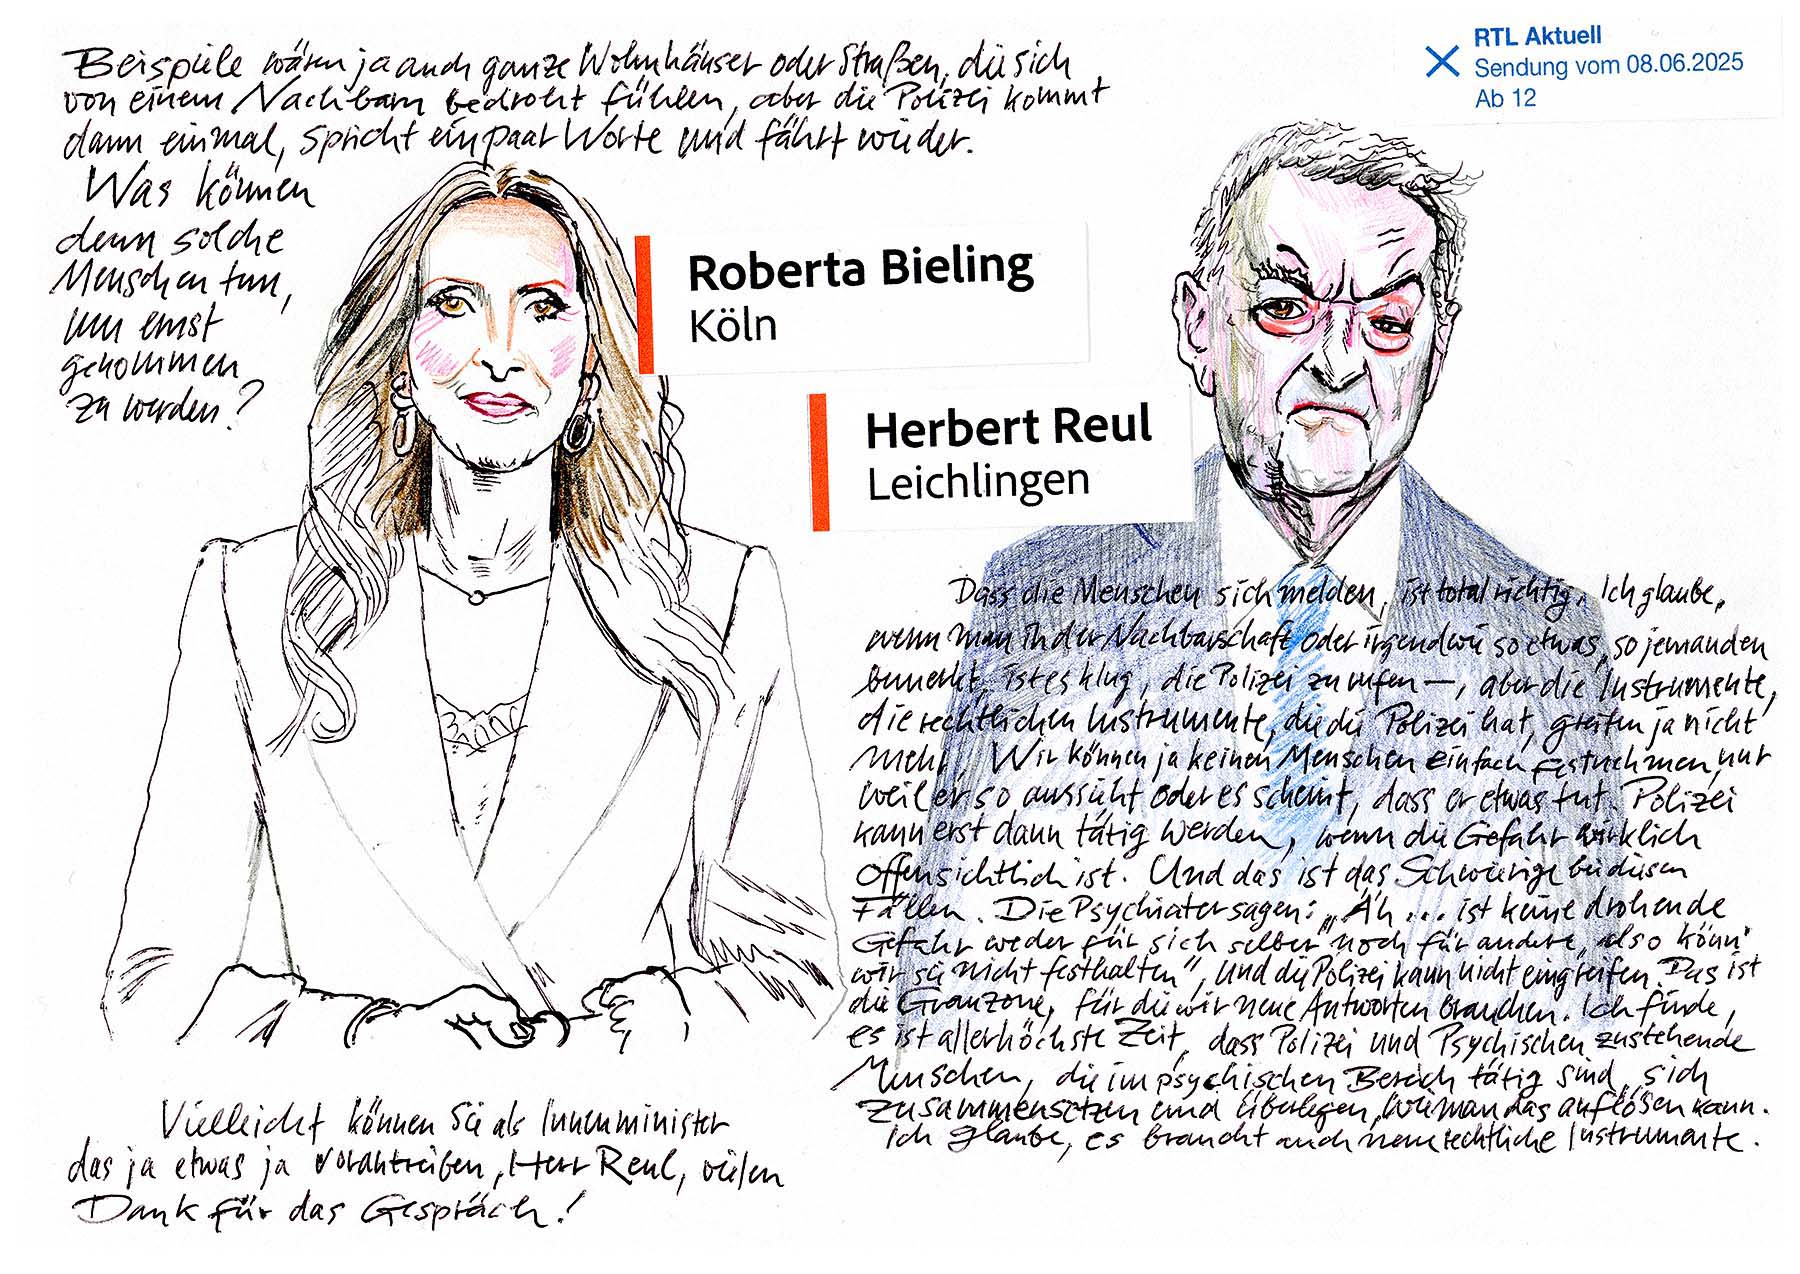 Beispiele wären ja auch ganze Wohnhäuser oder Straßen, die sich
von einem Nachbarn bedroht fühlen, aber die Polizei kommt
dann einmal, spricht ein paar Worte und fährt wieder.
Was können
denn solche
Menschen tun,
um ernst
genommen
zu werden?
RTL Aktuell
Sendung vom 08.06.2025
Ab 12
Roberta Bieling
Köln
Herbert Reul
Leichlingen
Dass die Menschen sich melden, ist total richtig. Ich glaube,
wenn man in der Nachbarschaft oder irgendwie so etwas, so jemanden
bemerkt, ist es klug, die Polizei zu rufen –, aber die Instrumente,
die rechtlichen Instrumente, die die Polizei hat, greifen ja nicht
mehr. Wir können ja keinen Menschen einfach festnehmen, nur
weil er so aussieht oder es scheint, dass er etwas tut. Polizei
kann erst dann tätig werden, wenn die Gefahr wirklich
offensichtlich ist. Und das ist das Schwierige bei diesen
Fällen. Die Psychiater sagen: „Äh ... ist keine drohende
Gefahr weder für sich selber noch für andere, also könn'
wir sie nicht festhalten“, und die Polizei kann nicht eingreifen. Das ist
die Grauzone, für die wir neue Antworten brauchen. Ich finde,
es ist allerhöchste Zeit, dass Polizei und Psychischen zustehende
Menschen, die im psychischen Bereich tätig sind, sich
zusammensetzen und überlegen, wie man das auflösen kann.
Ich glaube, es braucht auch neue rechtliche Instrumente.
Vielleicht können Sie als Innenminister
das ja etwas ja vorantreiben, Herr Reul, vielen
Dank für das Gespräch!